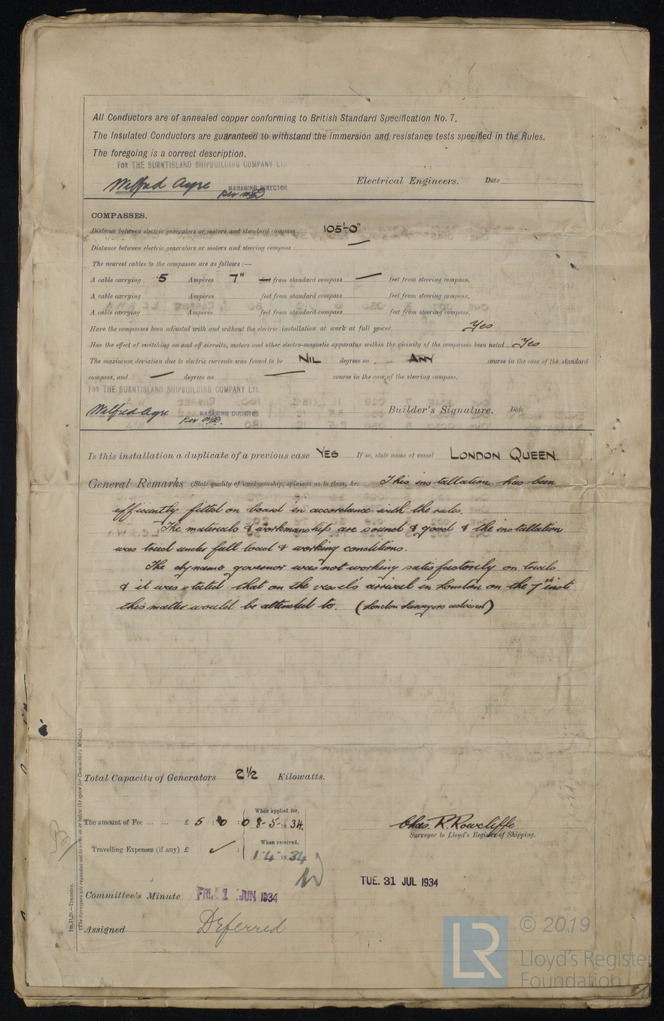 All Conductors are of annealed copper conforming to British Standard Specification No. 7.
The Insulated Conductors are guaranteed to withstand the immersion and resistance tests specified in the Rules.
The foregoing is a correct description.
FOR THE BURNTISLAND SHIPBUILDING COMPANY LTD
Wilfred Ayre MANAGING DIRECTOR Electrical Engineers. Date
COMPASSES.
Distance between electric generators or motors and standard compass 105'-0"
Distance between electric generators or motors and steering compass —
The nearest cables to the compasses are as follows:—
A cable carrying 5 Ampères 7" feet from standard compass — feet from steering compass.
A cable carrying Ampères feet from standard compass feet from steering compass.
A cable carrying Ampères feet from standard compass feet from steering compass.
Have the compasses been adjusted with and without the electric installation at work at full power Yes
Has the effect of switching on and off circuits, motors and other electro-magnetic apparatus within the vicinity of the compasses been noted Yes
The maximum deviation due to electric currents was found to be NIL degrees on Any course in the case of the standard
compass, and — degrees on — course in the case of the steering compass.
FOR THE BURNTISLAND SHIPBUILDING COMPANY LTD.
Wilfred Ayre MANAGING DIRECTOR Builder's Signature. Date
Is this installation a duplicate of a previous case YES If so, state name of vessel LONDON QUEEN
General Remarks (State quality of workmanship, opinions as to class, &c. This installation has been
efficiently fitted on board in accordance with the rules.
The materials & workmanship are sound & good & the installation
was tried under full load & working conditions.
The dynamo governor was not working satisfactorily on trials
& it was stated that on the vessel's arrival in London on the 7th inst
this matter would be attended to. (London Surveyors advised)
Total Capacity of Generators 2½ Kilowatts.
The amount of Fee £ 5 : 0 : 0 When applied for, 8-5-34.
Travelling Expenses (if any) £ ✓ When received, 1.4.34
Chas. R. Rowcliffe
Surveyor to Lloyd's Register of Shipping.
TUE. 31 JUL 1934
Committee's Minute FRI. 1 JUN 1934
Assigned Deferred
LR © 2019
Lloyd's Register
Foundation